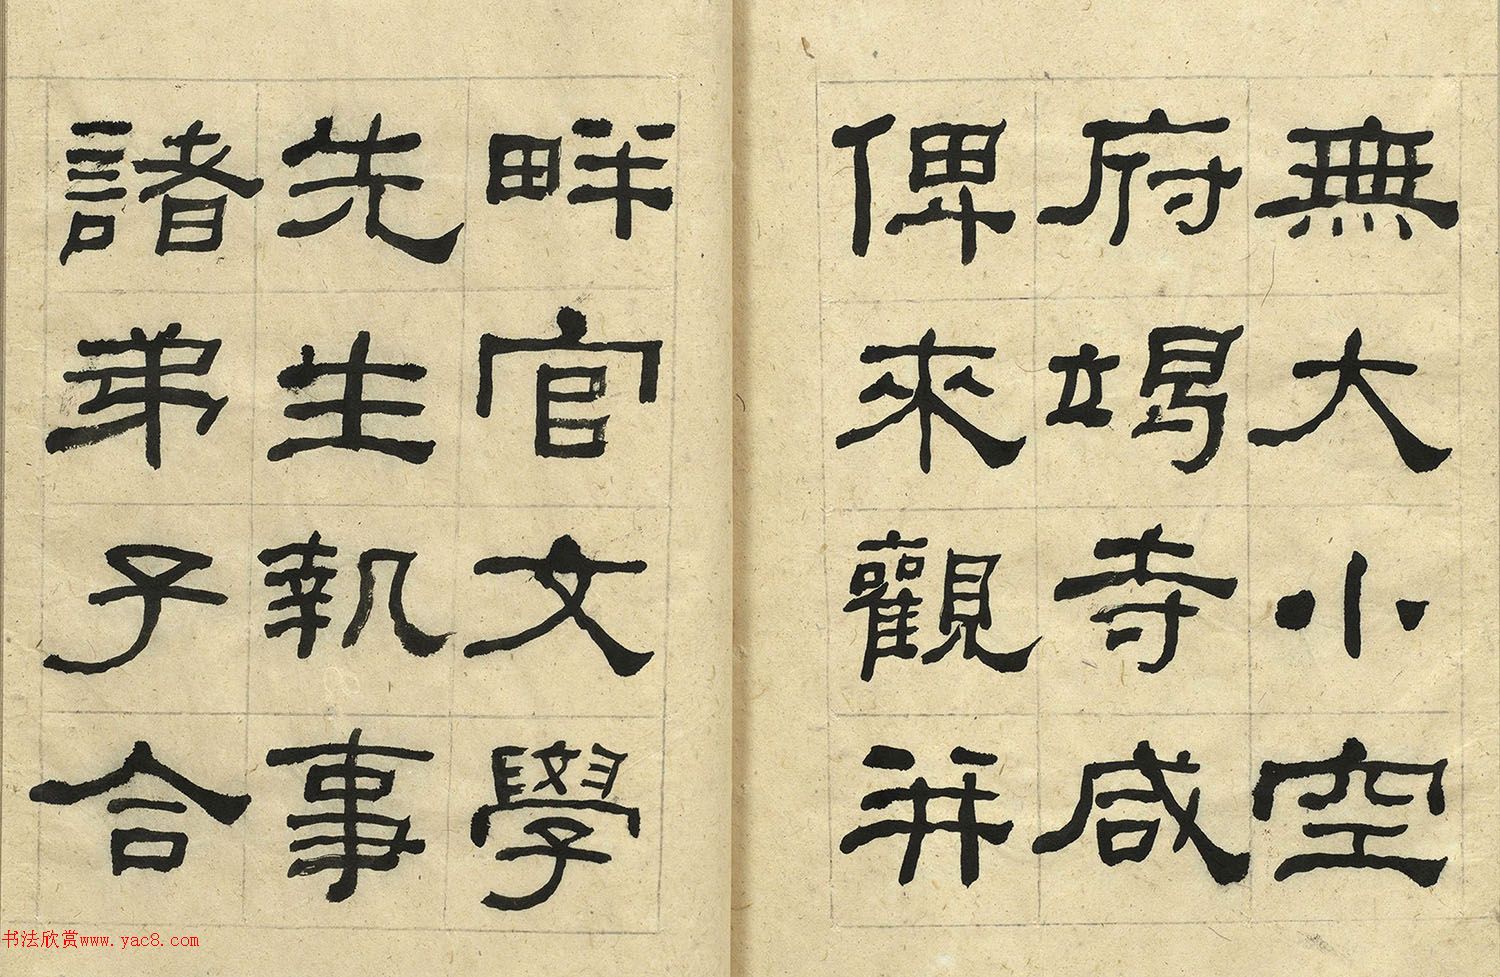 無大小空
府竭寺咸
俾來觀并
畔官文學
先生執事
諸弟子合
书法欣赏www.yac8.com